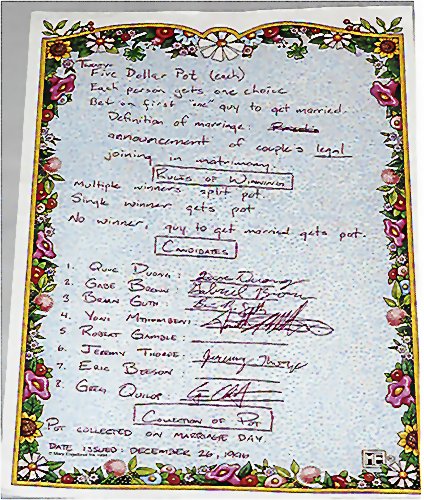 Twenty-
Five Dollar Pot (each)
Each person gets one choice
Bet on first "one" guy to get married.
Definition of marriage:
announcement of couple's legal
joining in matrimony
RULES OF WINNING
Multiple winners split pot.
Single winner gets pot
No winner, guy to get married gets pot.
CANDIDATES
1. QUOC DUONG: Quoc Duong
2. GABE BROWN: Gabriel Brown
3. BRIAN GUTH:
4. YONI MTHOMBENI:
5 ROBERT GAMBLE:
6. JEREMY THORPE: Jeremy Thorpe
7. ERIC BEESON:
8. GREG QUILOP:
COLLECTION OF POT
POT COLLECTED ON MARRIAGE DAY
DATE ISSUED: DECEMBER 26, 1996